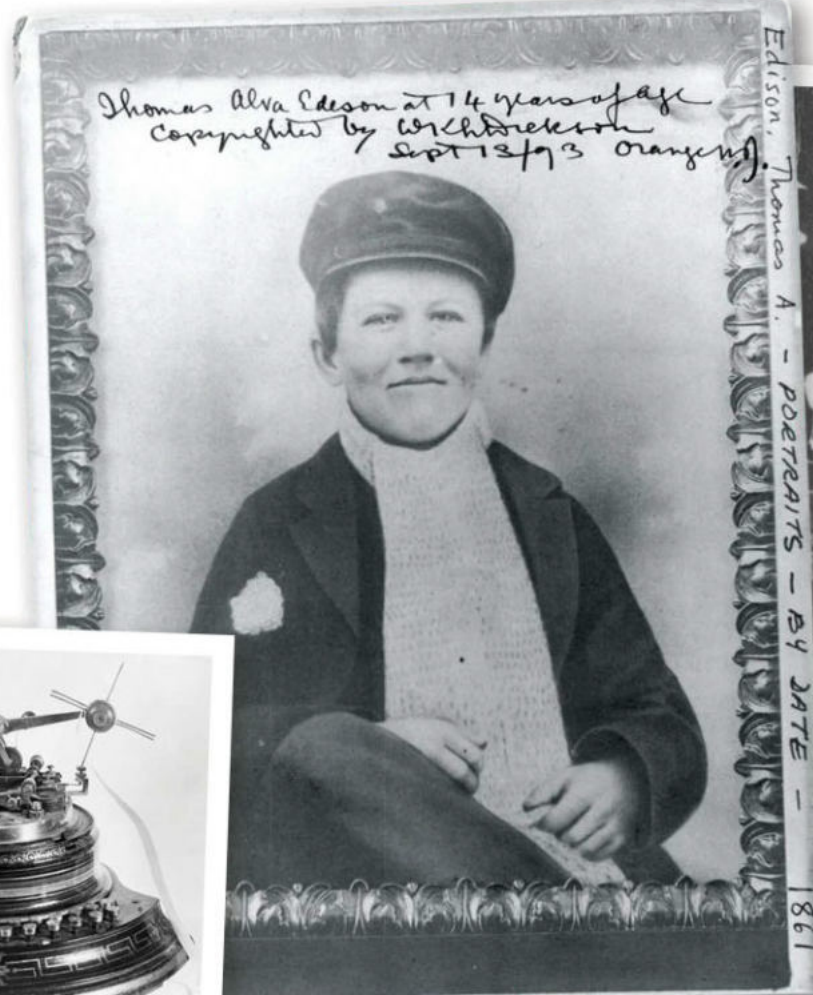 Thomas Alva Edison at 14 years of age
Copyrighted by WKLDickson
Sept 13/93 Orange N.J.
Edison, Thomas A. - PORTRAITS - BY DATE - 1861